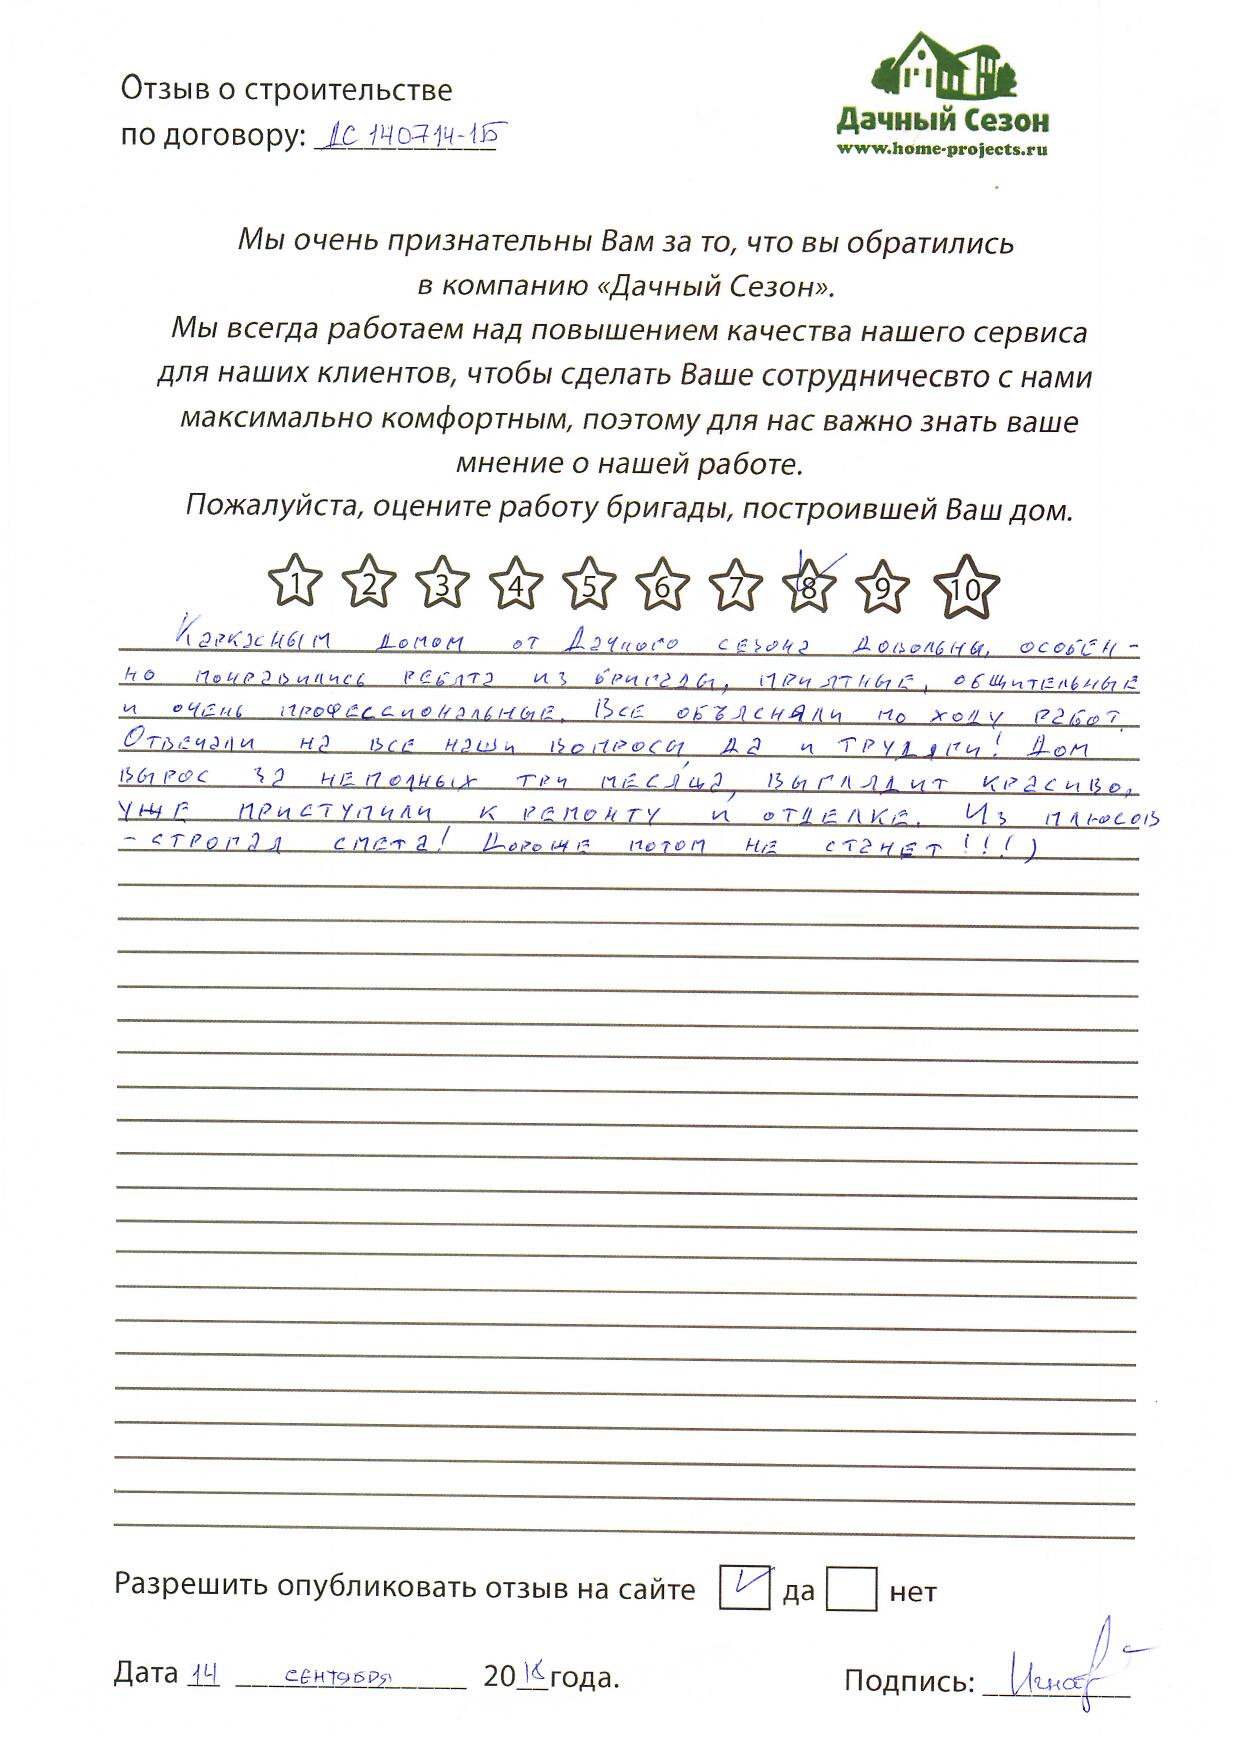 Отзыв о строительстве
по договору: ДС 140714-1Б
Дачный Сезон
www.home-projects.ru
Мы очень признательны Вам за то, что вы обратились
в компанию «Дачный Сезон».
Мы всегда работаем над повышением качества нашего сервиса
для наших клиентов, чтобы сделать Ваше сотрудничесвто с нами
максимально комфортным, поэтому для нас важно знать ваше
мнение о нашей работе.
Пожалуйста, оцените работу бригады, построившей Ваш дом.
1 2 3 4 5 6 7 8 9 10
Каркасным домом от Дачного сезона довольны, особен-
но понравились ребята из бригады, приятные, общительные
и очень профессиональные. Все объясняли по ходу работ.
Отвечали на все наши вопросы, да и трудяги! Дом
вырос за неполных три месяца, выглядит красиво,
уже приступили к ремонту и отделке. Из плюсов
- строгая смета! Дороже потом не станет!!!)
Разрешить опубликовать отзыв на сайте да нет
Дата 14 сентября 2018 года.
Подпись: